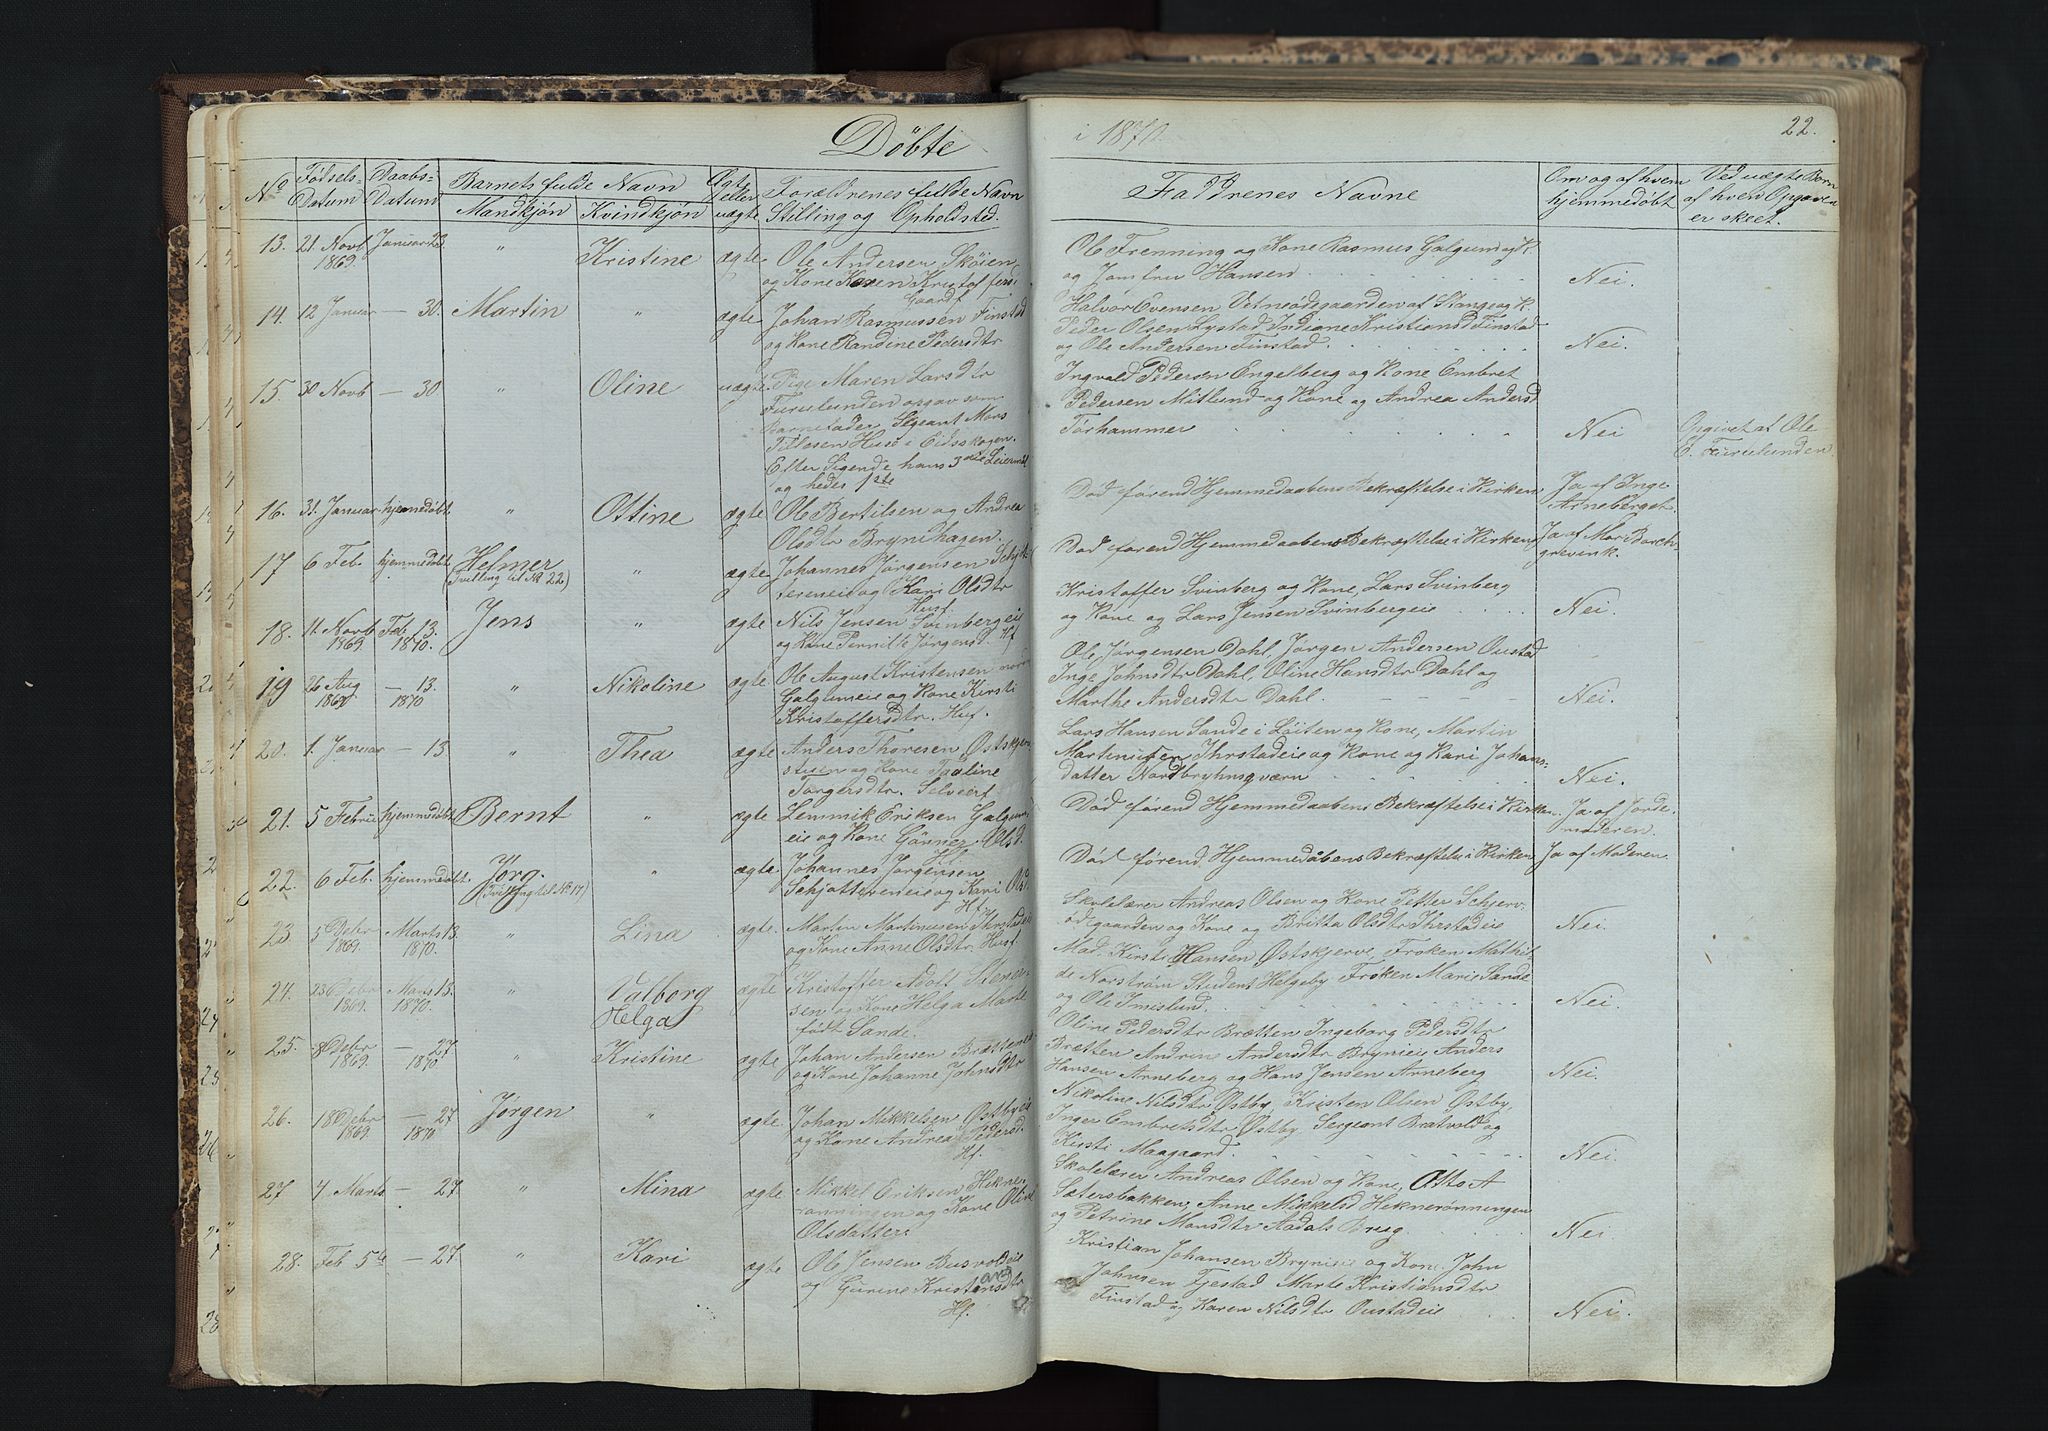 Döbte
i 1870
22.
No
Fødsels-
Datum
Daabs-
Datum
Barnets fulde Navn
Mandkjøn
Kvindkjøn
Ægte
eller
uægte
Forældrenes fulde Navn
Stilling og Opholdsted.
Faddrenes Navne
Om og af hvem
hjemmedøbt
Ved uægte Børn
af hvem Opgaven
er skeet.
13. 21. Novb 1869. Januar " Kristine ægte Ole Andersen Skøien
og Kone Karen Kristoffers
Gaardf
Ole Frenning og Kone Rasmus Galgum og K.
og Jomfru Hansen
Nei.
14. 12 Januar — 30. Martin " ægte Johan Rasmussen Finstad
og Kone Randine Pedersdtr
Halvor Evensen af Stange og K.
Peder Olsen Lystad, Indiane Kristiansd Finstad
og Ole Andersen Finstad.
Nei.
15. 30 Novb — 30 " Oline uægte Pige Maren Larsdtr
Furulunden opgav som
Barnefader Sergeant Mons
Tillesen Huse i Eidsskogen.
Efter Sigende hans 3die Leiermaal
og hedes 1ste
Ingvald Pedersen Engelberg og Kone Embret
Pedersen Mitlund og Kone og Andrea Andersd
Torhammer
Nei
Opgivet af Ole
E. Furulunden.
16. 31. Januar hjemmedøbt " Ottine ægte Ole Bertilsen og Andrea
Olsdtr Brynihagen.
Død førend Hjemmedaabens Bekræftelse i Kirken
Ja af Inge
Arneberget.
17 6 Feb. hjemmedøbt Helmer
(Tvilling til No 22) " ægte Johannes Jørgensen
og Kari Olsdtr
Husf.
Død førend Hjemmedaabens Bekræftelse i Kirken
Ja af Mari Borch
grevink.
18. 11. Novb 1869. Feb. 13. 1870. Jens " ægte Nils Jensen Svinbergeie
og Kone Pernille Jørgensd. Hf
Kristoffer Svinberg og Kone, Lars Svinberg
og Kone og Lars Jensen Svinbergeie
Nei.
19 26 Aug 1869 — 13. 1870 " Nikoline ægte Ole August Kristensen
Galgumeie og Kone Kirsti
Kristoffersdtr. Huf.
Ole Jørgensen Dahl, Jørgen Andersen Oustad
Inge Johnsdtr Dahl, Oline Hansdtr Dahl og
Marthe Andersdtr Dahl.
Nei.
20. 1. Januar — 13 " Thea ægte Anders Thoresen Østskjerv
stuen og Kone Pauline
Torgersdtr. Selveier
Lars Hansen Sande i Løiten og Kone, Martin
Martinusen Thrstadeie og Kone og Kari Johans-
datter Nordbryhnsqværn
Nei.
21. 5 Febru hjemmedøbt Bernt " ægte Lemmik Eriksen Galgum
eie og Kone Gønner Olsd.
Hf.
Død førend Hjemmedaabens Bekræftelse i Kirken.
Ja af Jorde-
moderen.
22. 6 Feb. hjemmedøbt Jörg.
(Tvilling til No 17) " ægte Johannes Jørgensen
Schjottereneie og Kari Olsd
Hf.
Død førend Hjemmedåbens Bekræftelse i Kirken
Ja af Moderen.
23 5 Debr 1869. Marts 13. 1870. " Lina ægte. Martin Martinusen Thrstadeie
og Kone Anne Olsdtr. Husf.
Skolelærer Andreas Olsen og Kone Petter Schjerv-
ødegaarden og Kone og Britta Olsdtr Thrstadeie
Nei.
24. 23 Debr 1869. Marts 13. 1870. " Valborg
Helga ægte Kristoffer Adolf Stener-
sen og Kone Helga Marte
født Sande.
Mad. Kirsti Hansen Østskjerve, Frøken Mathil
de Norstrøm Student Helgeby Frøken Marie Sande
og Ole Imislund.
Nei.
25. 8 Debr 1869. — 27 1870 " Kristine ægte Johan Andersen Brættenei
og Kone Johanne Johnsdtr
Oline Pedersdtr Brætten Ingeborg Pedersdtr
Brætten Andrine Andersdtr Brynieie Anders
Hansen Arneberg og Hans Jensen Arneberg
Nei.
26. 18 Debr 1869. — 27 1870 Jørgen " ægte. Johan Mikkelsen Østbyeie
og Kone Andrea Pedersd.
Hf.
Nikoline Nilsdtr Østby, Kristen Olsen Østby,
Inger Embretsdtr Østby Sergeant Bratvold og
Kirsti Maagaard.
Nei.
27 4. Marts — 27 " Mina ægte Mikkel Eriksen Hekne-
rønningen og Kone Oline
Olsdatter.
Skolelærer Andreas Olsen og Kone, Otto A
Sætersbakken, Anne Mikkelsd Heknerønningen
og Petrine Monsdtr Aadals Brug
Nei.
28. Feb 5te — 27 " Kari ægte Ole Jensen Busvoldeie
og Gurine Kristensdtr
Hf.
Kristian Johansen Brynieie og Kone, John
Johnsen Tjestad Marte Kristiansdtr
Finstad og Karen Nilsdtr Oustadeie
Nei.